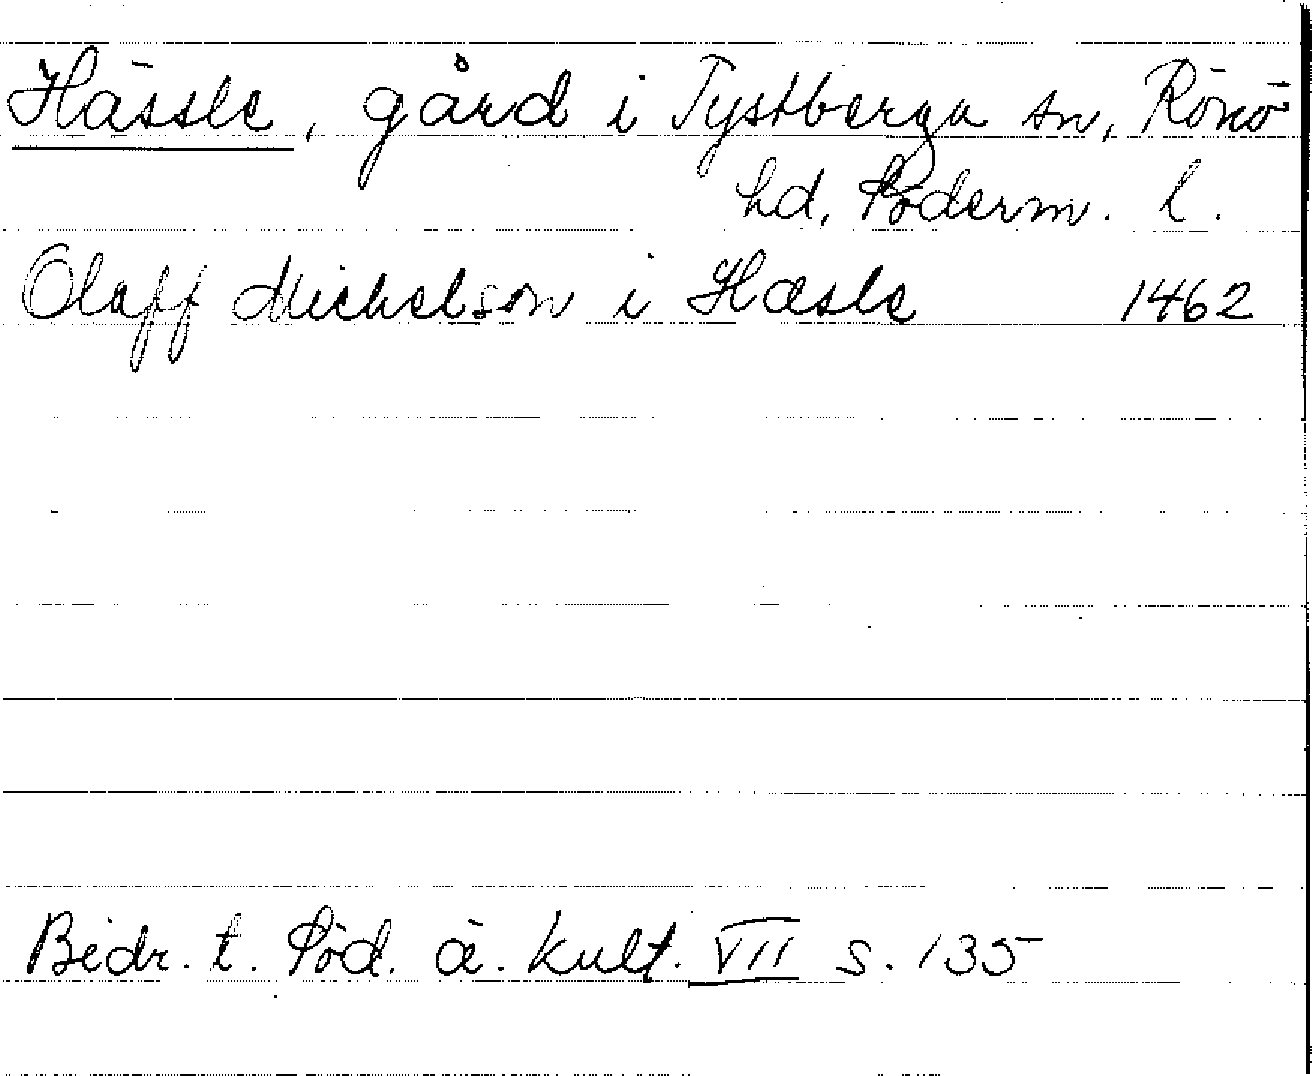 Hässle, gård i Tystberga sn, Rönö
hd, Söderm. l.
Olaff Michelson i Hæsle 1462
Bidr. t. Söd. ä. kult. VII s. 135